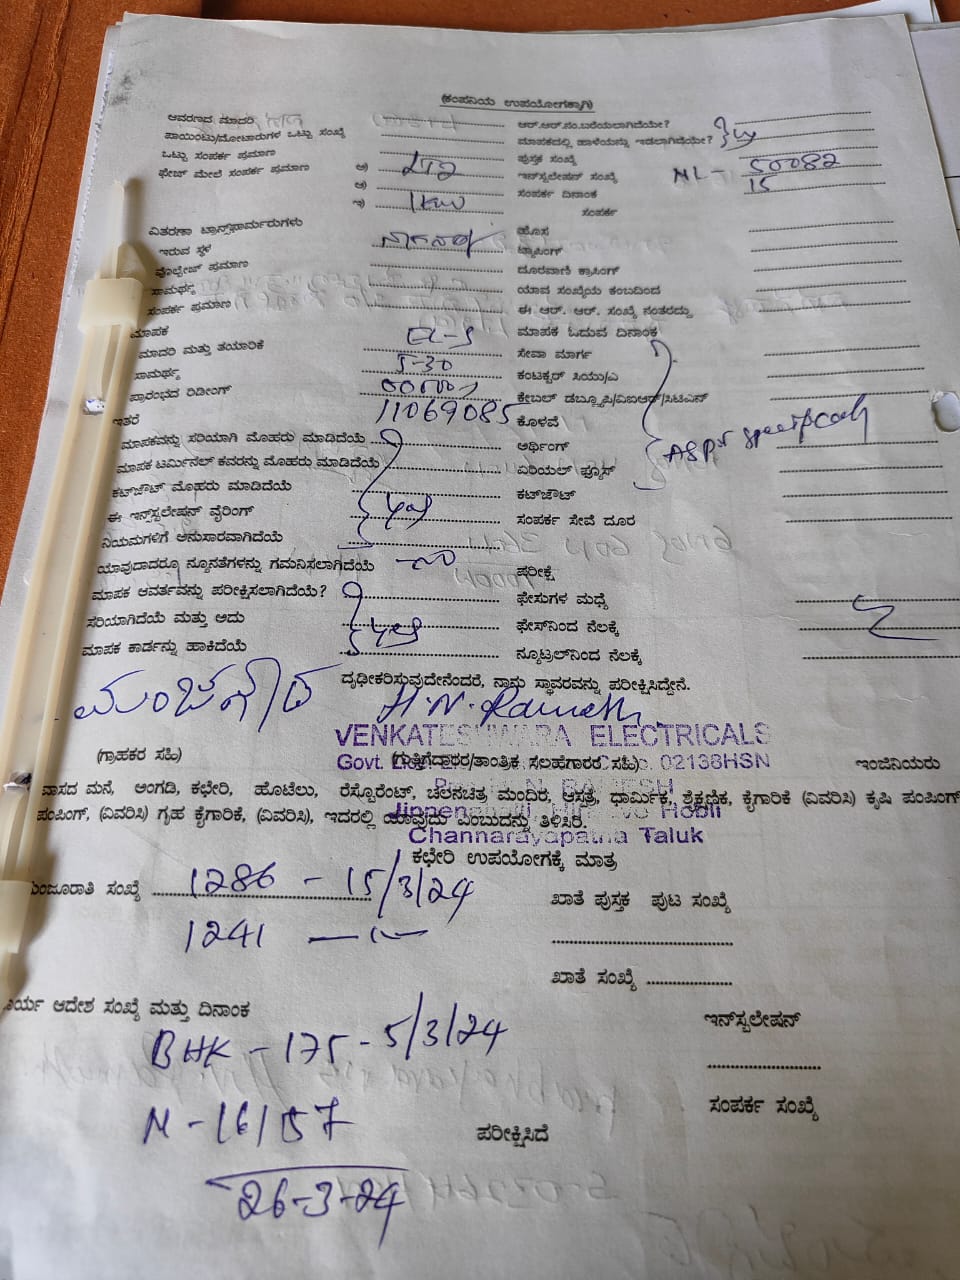 (ಕಂಪನಿಯ ಉಪಯೋಗಕ್ಕಾಗಿ)
ಆವರಣದ ಮಾದರಿ
ಆರ್.ಆರ್.ನಂ.ಬರೆಯಲಾಗಿದೆಯೇ?
ಪಾಯಿಂಟು/ಮೋಟಾರುಗಳ ಒಟ್ಟು ಸಂಖ್ಯೆ
ಮಾಪಕದಲ್ಲಿ ಹಾಳೆಯನ್ನು ಇಡಲಾಗಿದೆಯೇ?
ಒಟ್ಟು ಸಂಪರ್ಕ ಪ್ರಮಾಣ
ಪುಸ್ತಕ ಸಂಖ್ಯೆ
ಫೇಜ್ ಮೇಲೆ ಸಂಪರ್ಕ ಪ್ರಮಾಣ ಅ) LT2
ಇನ್‌ಸ್ಟಲೇಷನ್ ಸಂಖ್ಯೆ NL- 50082
ಆ)
ಸಂಪರ್ಕ ದಿನಾಂಕ 15
ಇ) 1KW
ಸಂಪರ್ಕ
ವಿತರಣಾ ಟ್ರಾನ್ಸ್‌ಫಾರ್ಮರುಗಳು
ಹೊಸ
ಇರುವ ಸ್ಥಳ
ಟ್ಯಾಪಿಂಗ್
ವೋಲ್ಟೇಜ್ ಪ್ರಮಾಣ
ದೂರವಾಣಿ ಕ್ರಾಸಿಂಗ್
ಸಾಮರ್ಥ್ಯ
ಯಾವ ಸಂಖ್ಯೆಯ ಕಂಬದಿಂದ
ಸಂಪರ್ಕ ಪ್ರಮಾಣ
ಈ ಆರ್. ಆರ್. ಸಂಖ್ಯೆ ನಂತರದ್ದು
ಮಾಪಕ
ಮಾಪಕ ಓದುವ ದಿನಾಂಕ
ಮಾದರಿ ಮತ್ತು ತಯಾರಿಕೆ EL-S
ಸೇವಾ ಮಾರ್ಗ
ಸಾಮರ್ಥ್ಯ 5-30
ಕಂಟಕ್ಟರ್ ಸಿಯು/ಎ
ಪ್ರಾರಂಭದ ರಿಡೀಂಗ್
ಕೇಬಲ್ ಡಬ್ಲ್ಯೂಪಿ/ವಿಐಆರ್/ಸಿಟಿಎನ್
ಇತರೆ 11069085
ಕೊಳವೆ
ಮಾಪಕವನ್ನು ಸರಿಯಾಗಿ ಮೊಹರು ಮಾಡಿದೆಯೆ
ಅರ್ಥಿಂಗ್
ಮಾಪಕ ಟರ್ಮಿನಲ್ ಕವರನ್ನು ಮೊಹರು ಮಾಡಿದೆಯೆ
ಏರಿಯಲ್ ಫ್ಯೂಸ್
ಕಟ್‌ಔಟ್ ಮೊಹರು ಮಾಡಿದೆಯೆ
ಕಟ್‌ಔಟ್
ಈ ಇನ್‌ಸ್ಟಲೇಷನ್ ವೈರಿಂಗ್
ಸಂಪರ್ಕ ಸೇವೆ ದೂರ
ನಿಯಮಗಳಿಗೆ ಅನುಸಾರವಾಗಿದೆಯೆ
ಯಾವುದಾದರೂ ನ್ಯೂನತೆಗಳನ್ನು ಗಮನಿಸಲಾಗಿದೆಯೆ
ಪರೀಕ್ಷೆ
ಮಾಪಕ ಆವರ್ತವನ್ನು ಪರೀಕ್ಷಿಸಲಾಗಿದೆಯೆ?
ಫೇಸುಗಳ ಮಧ್ಯೆ
ಸರಿಯಾಗಿದೆಯೆ ಮತ್ತು ಅದು
ಫೇಸ್‌ನಿಂದ ನೆಲಕ್ಕೆ
ಮಾಪಕ ಕಾರ್ಡನ್ನು ಹಾಕಿದೆಯೆ
ನ್ಯೂಟ್ರಲ್‌ನಿಂದ ನೆಲಕ್ಕೆ
ದೃಢೀಕರಿಸುವುದೇನೆಂದರೆ, ನಾನು ಸ್ಥಾವರವನ್ನು ಪರೀಕ್ಷಿಸಿದ್ದೇನೆ.
ಮಂಜೇಗೌಡ H.N. Ramesh
VENKATESHWARA ELECTRICALS
(ಗ್ರಾಹಕರ ಸಹಿ) (ಗುತ್ತಿಗೆದಾರರ/ತಾಂತ್ರಿಕ ಸಲಹೆಗಾರರ ಸಹಿ) ಇಂಜಿನಿಯರು
Govt. 02138HSN
ವಾಸದ ಮನೆ, ಅಂಗಡಿ, ಕಛೇರಿ, ಹೊಟೇಲು, ರೆಸ್ಟೊರೆಂಟ್, ಚಲನಚಿತ್ರ ಮಂದಿರ, ಆಸ್ಪತ್ರೆ, ಧಾರ್ಮಿಕ, ಶೈಕ್ಷಣಿಕ, ಕೈಗಾರಿಕೆ (ವಿವರಿಸಿ) ಕೃಷಿ ಪಂಪಿಂಗ್
ಪಂಪಿಂಗ್, (ವಿವರಿಸಿ) ಗೃಹ ಕೈಗಾರಿಕೆ, (ವಿವರಿಸಿ), ಇದರಲ್ಲಿ ಯಾವುದು ಎಂಬುದನ್ನು ತಿಳಿಸಿರಿ.
Hobli
Channarayapatna Taluk
ಕಛೇರಿ ಉಪಯೋಗಕ್ಕೆ ಮಾತ್ರ
ಮಂಜೂರಾತಿ ಸಂಖ್ಯೆ 1286 - 15/3/24
ಖಾತೆ ಪುಸ್ತಕ ಪುಟ ಸಂಖ್ಯೆ
1241 — 11 —
ಖಾತೆ ಸಂಖ್ಯೆ
ಕಾರ್ಯ ಆದೇಶ ಸಂಖ್ಯೆ ಮತ್ತು ದಿನಾಂಕ
ಇನ್‌ಸ್ಟಲೇಷನ್
BHK - 175 - 5/3/24
ಸಂಪರ್ಕ ಸಂಖ್ಯೆ
N - 16/157
ಪರೀಕ್ಷಿಸಿದೆ
26-3-24